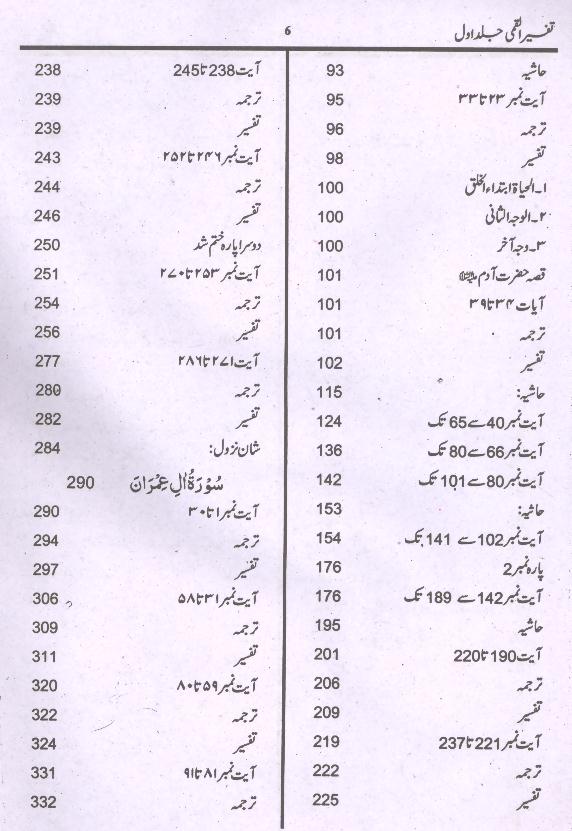 تفسیر القمی جلد اول
6
حاشیہ 93
آیت نمبر ۲۳ تا ۳۳ 95
ترجمہ 96
تفسیر 98
۱۔الحیاۃ ابتداء الخلق 100
۲۔الوجہ الثانی 100
۳۔وجہ آخر 100
قصہ حضرت آدم علیہ السلام 101
آیات ۳۴ تا ۳۹ 101
ترجمہ 101
تفسیر 102
حاشیہ: 115
آیت نمبر 40 سے 65 تک 124
آیت نمبر 66 سے 80 تک 136
آیت نمبر 80 سے 101 تک 142
حاشیہ: 153
آیت نمبر 102 سے 141 تک 154
پارہ نمبر 2 176
آیت نمبر 142 سے 189 تک 176
حاشیہ 195
آیت 190 تا 220 201
ترجمہ 206
تفسیر 209
آیت نمبر 221 تا 237 219
ترجمہ 222
تفسیر 225
آیت 238 تا 245 238
ترجمہ 239
تفسیر 239
آیت نمبر ۲۴۶ تا ۲۵۲ 243
ترجمہ 244
تفسیر 246
دوسرا پارہ ختم شد 250
آیت نمبر ۲۵۳ تا ۲۷۰ 251
ترجمہ 254
تفسیر 256
آیت ۲۷۱ تا ۲۸۶ 277
ترجمہ 280
تفسیر 282
شان نزول: 284
سُوْرَۃُ اٰلِ عِمْرَانَ 290
آیت نمبر ۱ تا ۳۰ 290
ترجمہ 294
تفسیر 297
آیت نمبر ۳۱ تا ۵۸ 306
ترجمہ 309
تفسیر 311
آیت نمبر ۵۹ تا ۸۰ 320
ترجمہ 322
تفسیر 324
آیت نمبر ۸۱ تا ۹۱ 331
ترجمہ 332